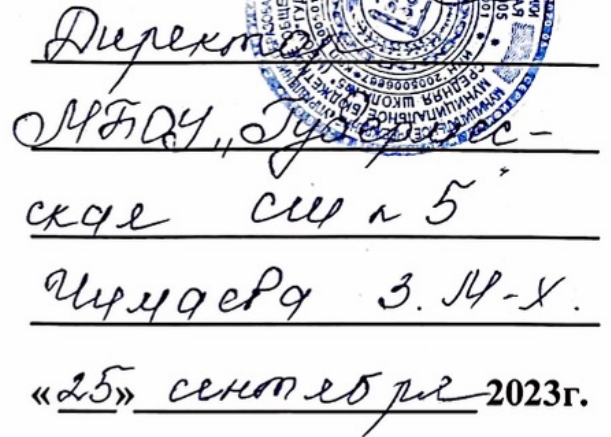 Директор
МБОУ „Гудермес-
ская СШ № 5"
Чимаева З. М-Х.
«25» сентября 2023г.